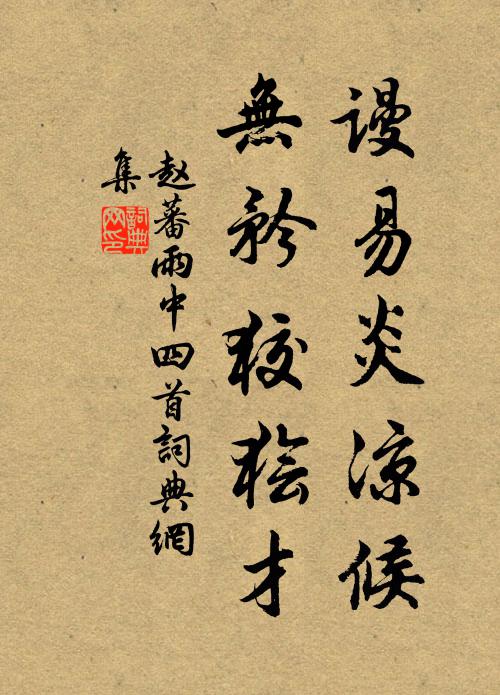 謾易炎凉候
無矜狡獪才
赵蕃雨中四首詞典網
集
詞典網印